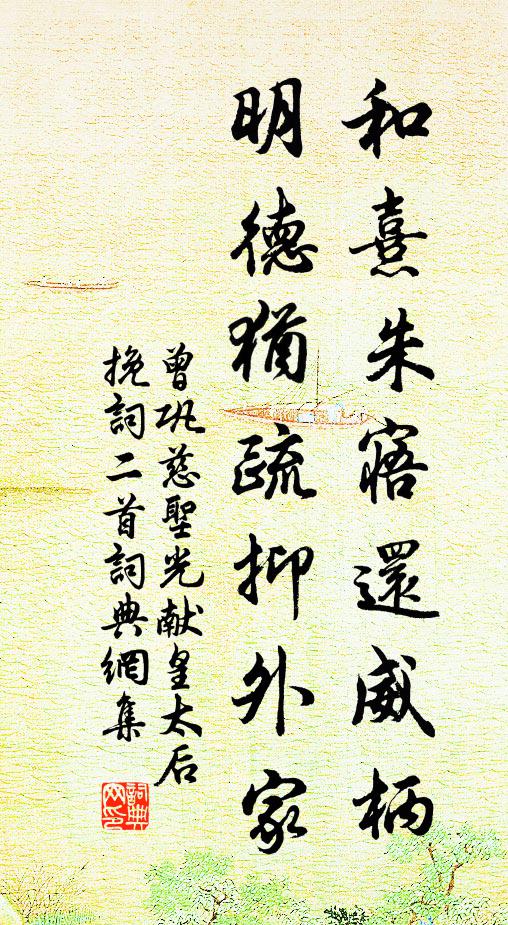 和熹朱寤還威柄
明德猶疏抑外家
曾巩慈聖光献皇太后
挽詞二首詞典網集
詞典
网印